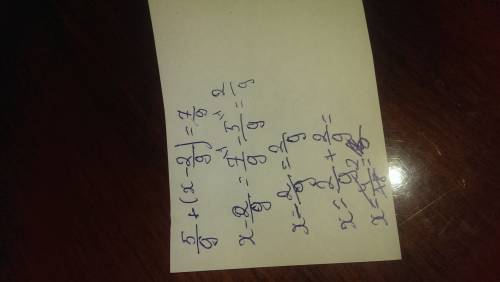 5/9 + (x - 2/9) = 7/9
x - 2/9 = 7/9 - 5/9 = 2/9
x - 2/9 = 2/9
x = 2/9 + 2/9 =